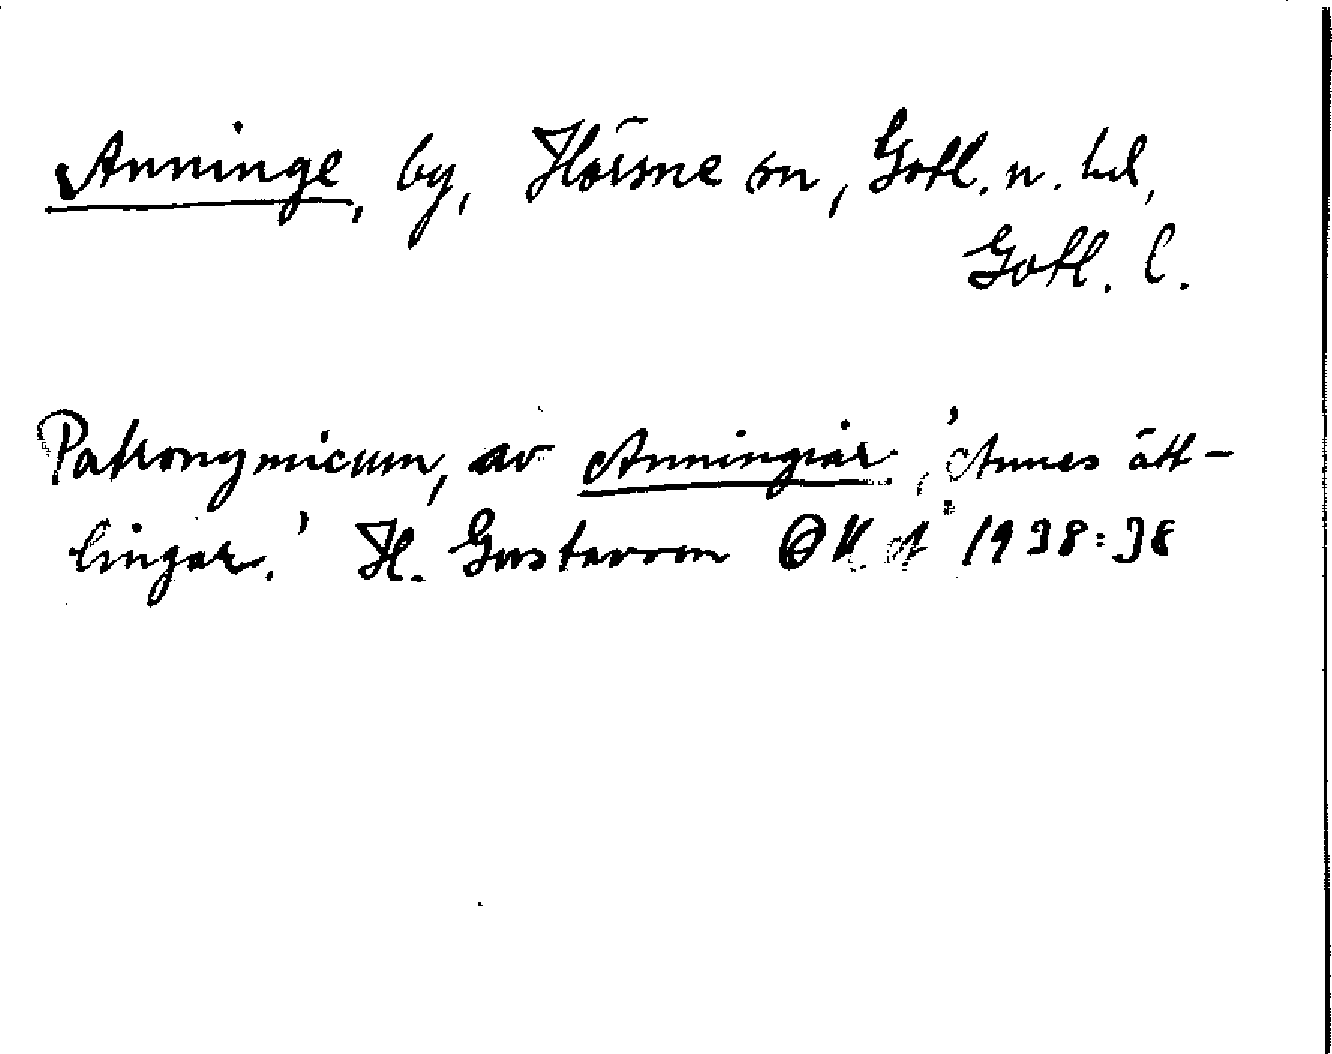 Anninge, by, Hörsne sn, Gotl. n. hd,
Gotl. l.
Patronymicum, av Anningiar, 'Annes ätt-
lingar.' H. Gustavson 1938:38